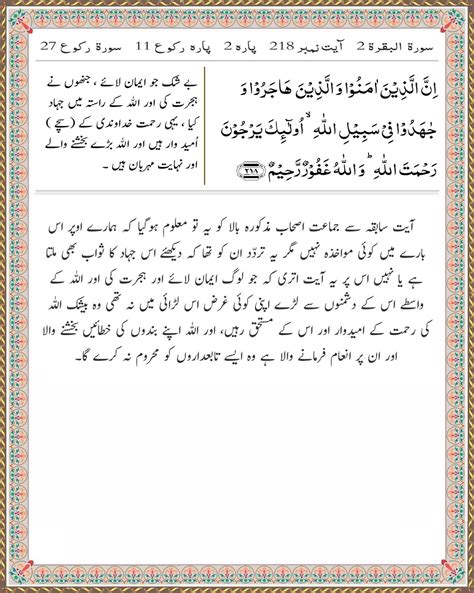 سورۃ البقرۃ 2 آیت نمبر 218 پارہ 2 پارہ رکوع 11 سورۃ رکوع 27
اِنَّ الَّذِیْنَ اٰمَنُوْا وَ الَّذِیْنَ هَاجَرُوْا وَ
جٰهَدُوْا فِیْ سَبِیْلِ اللّٰهِۙ اُولٰٓىِٕكَ یَرْجُوْنَ
رَحْمَتَ اللّٰهِؕ وَ اللّٰهُ غَفُوْرٌ رَّحِیْمٌ ﴿۲۱۸﴾
بے شک جو ایمان لائے ، جنھوں نے
ہجرت کی اور اللہ کے راستہ میں جہاد
کیا ، یہی رحمت خداوندی کے (سچے)
اُمید وار ہیں اور اللہ بڑے بخشنے والے
اور نہایت مہربان ہیں ۔
آیت سابقہ سے جماعت اصحاب مذکورہ بالا کو یہ تو معلوم ہوگیا کہ ہمارے اوپر اس
بارے میں کوئی مواخذہ نہیں مگر یہ تردّد ان کو تھا کہ دیکھئے اس جہاد کا ثواب بھی ملتا
ہے یا نہیں اس پر یہ آیت اتری کہ جو لوگ ایمان لائے اور ہجرت کی اور اللہ کے
واسطے اس کے دشمنوں سے لڑے اپنی کوئی غرض اس لڑائی میں نہ تھی وہ بیشک اللہ
کی رحمت کے امیدوار اور اس کے مستحق رہیں، اور اللہ اپنے بندوں کی خطائیں بخشنے والا
اور ان پر انعام فرمانے والا ہے وہ ایسے تابعداروں کو محروم نہ کرے گا۔